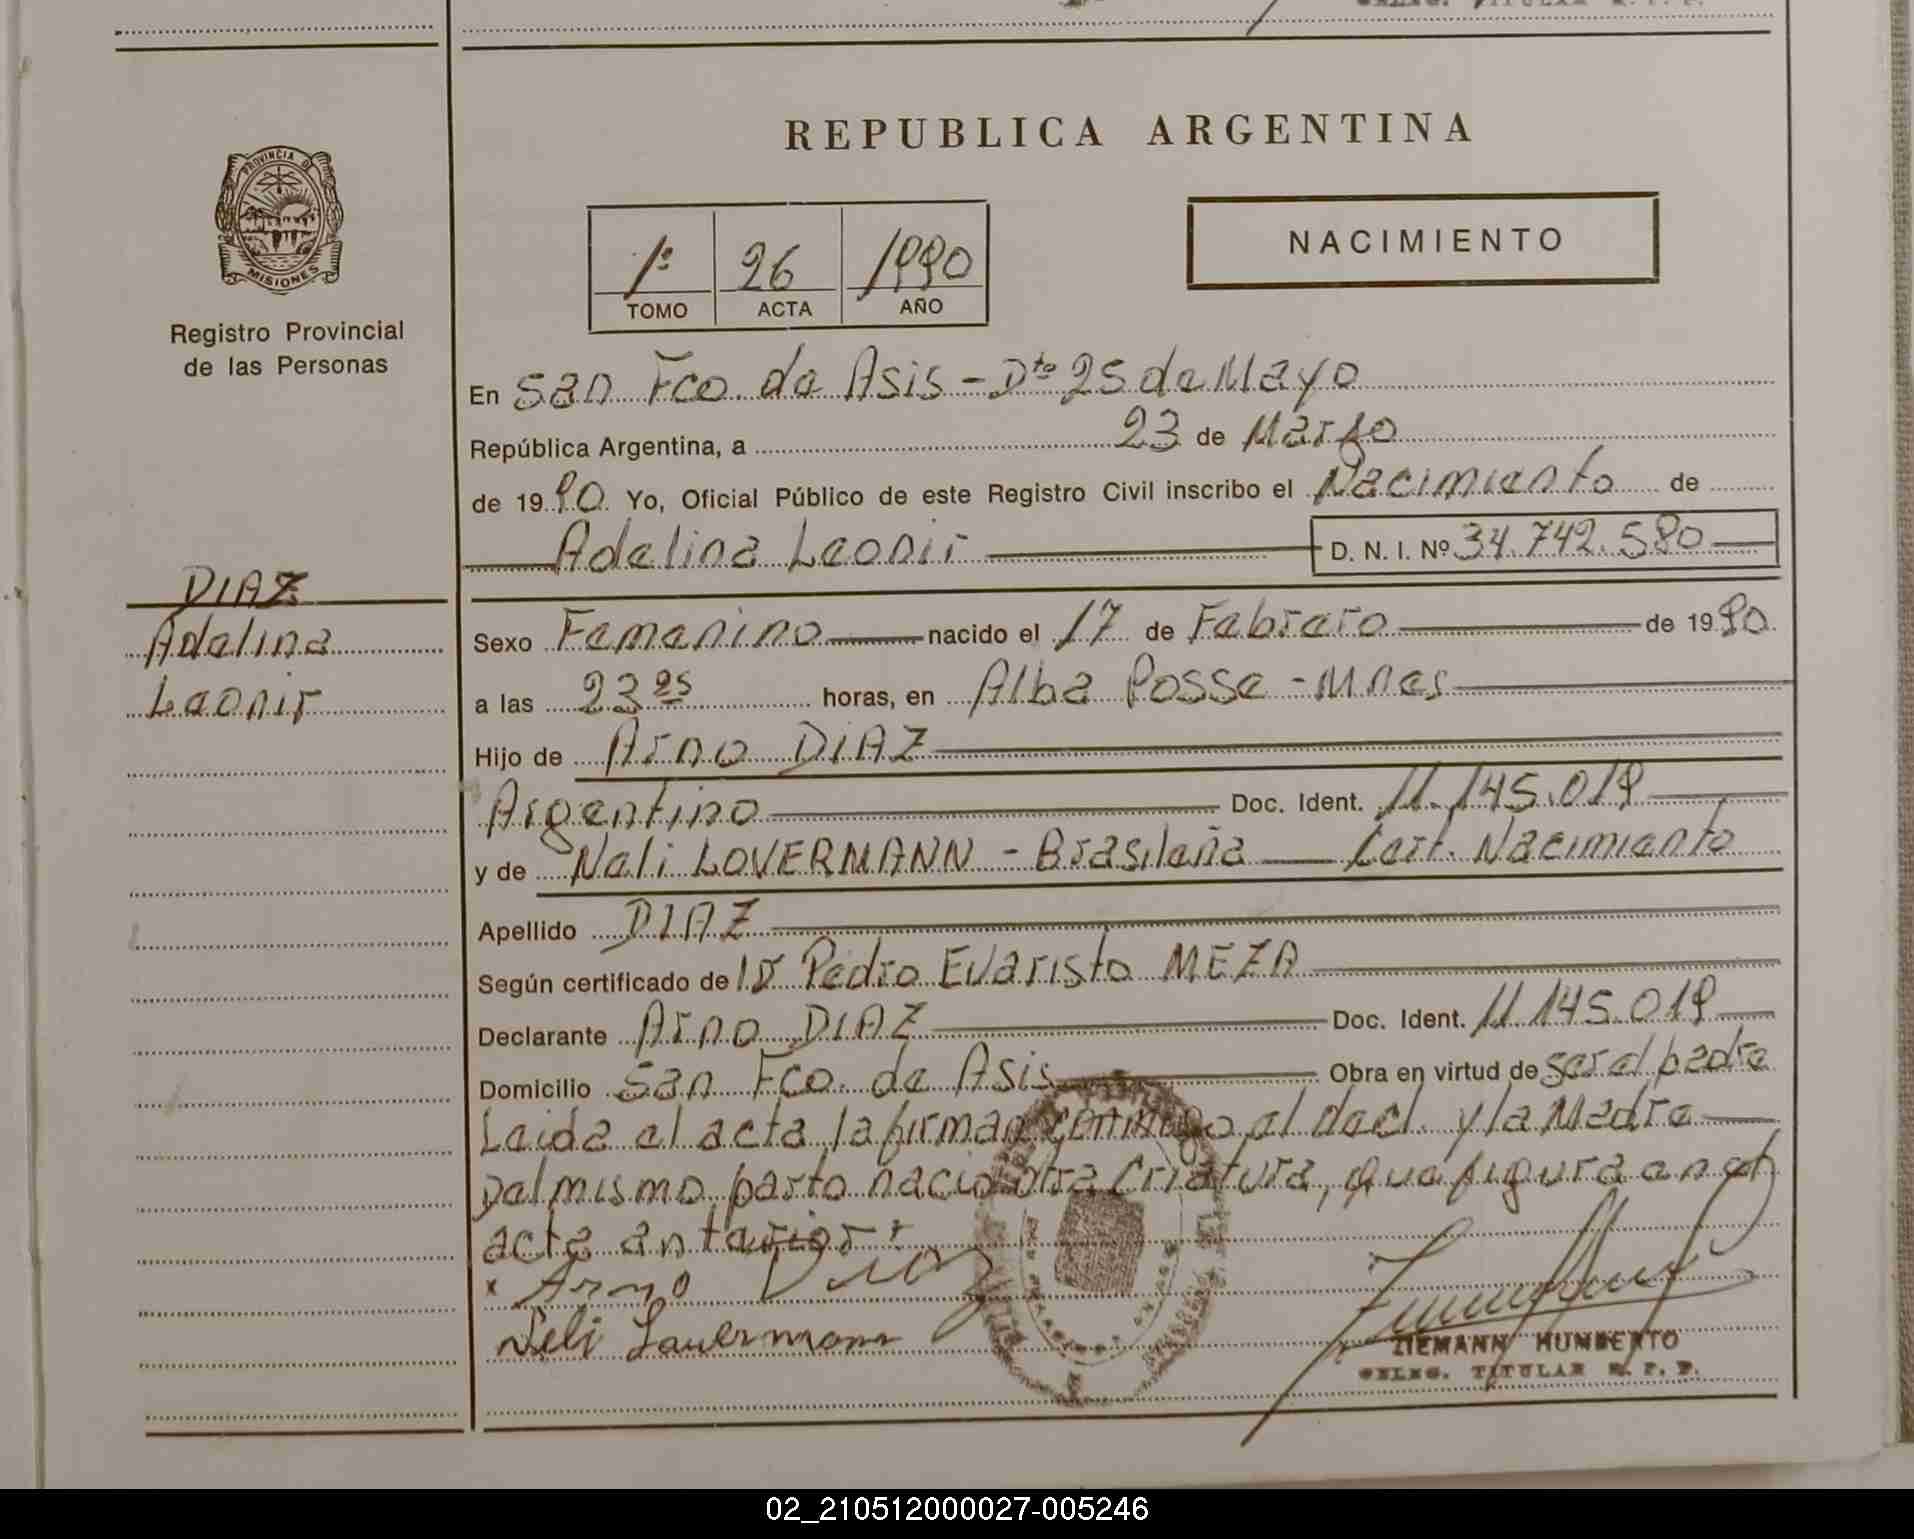 REPUBLICA ARGENTINA
PROVINCIA DE
MISIONES
Registro Provincial
de las Personas
1º 26 1990
TOMO ACTA AÑO
NACIMIENTO
En San Fco. de Asis - Dto 25 de Mayo
República Argentina, a 23 de Marzo
de 1990 Yo, Oficial Público de este Registro Civil inscribo el Nacimiento de
Adelina Leonir D. N. I. Nº 34.742.580
DIAZ
Adelina
Leonir
Sexo Femenino nacido el 17 de Febrero de 1990
a las 23 25 horas, en Alba Posse - Mnes
Hijo de Arno DIAZ
Argentino Doc. Ident. 11.145.019
y de Neli LOVERMANN - Brasileña Cert. Nacimiento
Apellido DIAZ
Según certificado de Pedro Evaristo MEZA
Declarante Arno DIAZ Doc. Ident. 11.145.019
Domicilio San Fco. de Asis Obra en virtud de ser el padre
Leida el acta la firman conmigo el decl. y la Madre
Del mismo parto nacio otra Criatura, que figura en el
acta anterior.
x Arno Diaz
Neli Lauermann
ZIEMANN HUMBERTO
DELEG. TITULAR R. P. P.
02_210512000027-005246